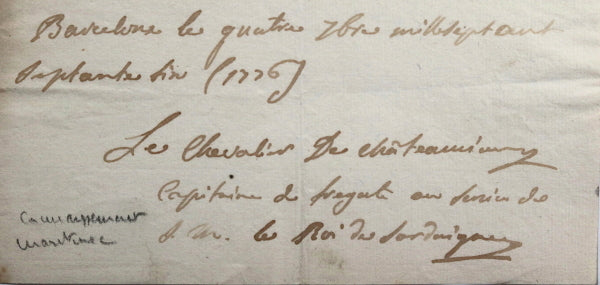 Barcelone le quatre 7bre mille sept cent
septante six (1776)
Le Chevalier De Châteaumieux
Capitaine de fregate au Service de
S. M. le Roi de Sardaigne
Connaissement
maritime